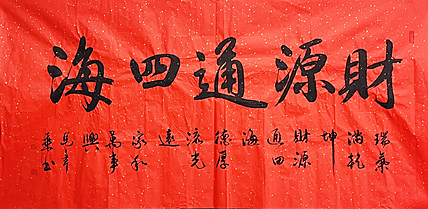 財源通四海
瑞氣
滿乾
坤
財源
通四
海
德厚
流光
遠
家和
萬事
興